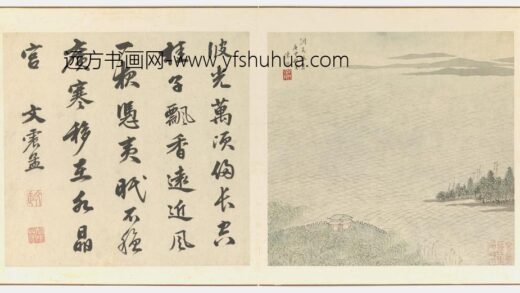 远方书画网-www.yfshuhua.com
波光萬頃長空
桂子飄香遠近風
一夜憑夷眠不穩
廣寒移在水晶
宮 文震孟